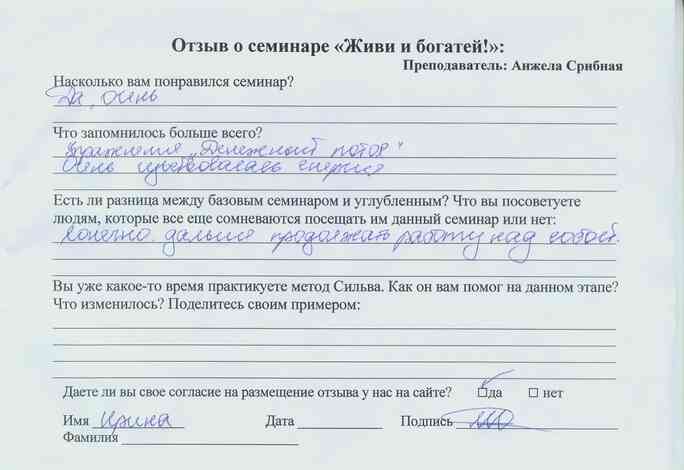 Отзыв о семинаре «Живи и богатей!»:
Преподаватель: Анжела Срибная
Насколько вам понравился семинар?
Да, очень
Что запомнилось больше всего?
Упражнения „Денежный поток"
Очень чувствовалась энергия
Есть ли разница между базовым семинаром и углубленным? Что вы посоветуете
людям, которые все еще сомневаются посещать им данный семинар или нет:
Конечно дальше продолжать работу над собой.
Вы уже какое-то время практикуете метод Сильва. Как он вам помог на данном этапе?
Что изменилось? Поделитесь своим примером:
Даете ли вы свое согласие на размещение отзыва у нас на сайте? да нет
Имя Ирина Дата Подпись
Фамилия